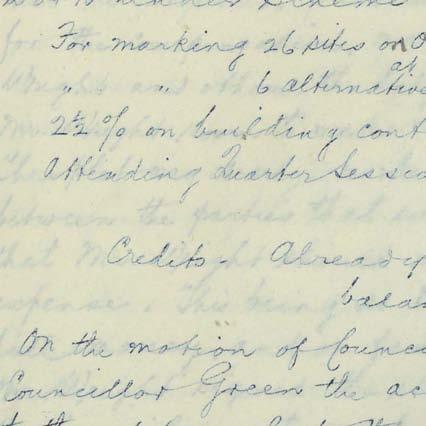 Scheme
For marking 26 sites on
at
" " " 6 alternative
2½% on building cont
Attending Quarter Sessio
Credits. Already
balan
On the motion of Counc
Councillor Green the ac